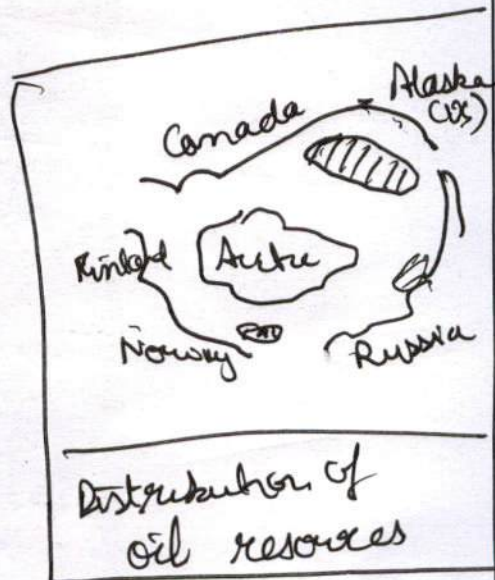 Alaska
(US)
Canada
Finland
Arctic
Norway
Russia
Distribution of
oil resources